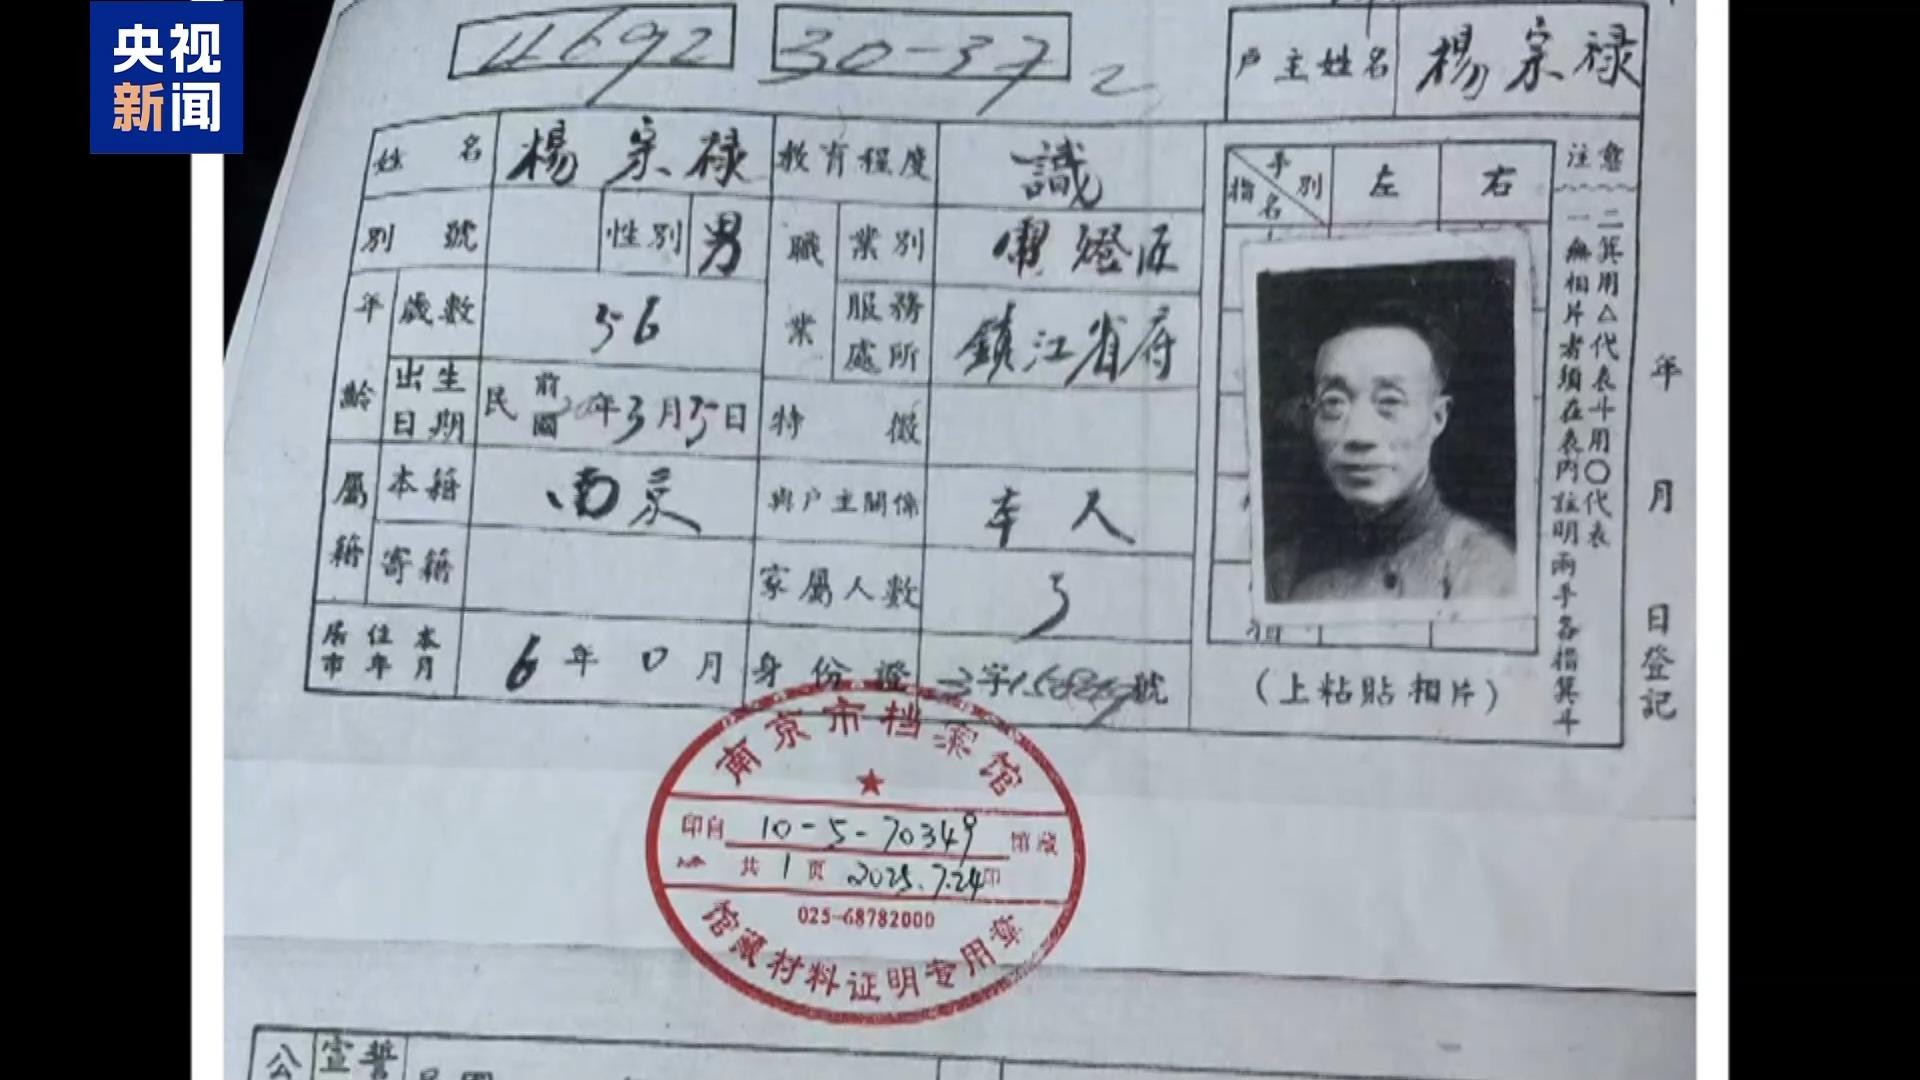 央视
新闻
4692
30-37
2
户主姓名
楊宗祿
姓名
楊宗祿
教育程度
識
別號
性別
男
職業
業別
燈匠
年齡
歲數
56
服務處所
鎮江省府
出生日期
民國前
年3月
日
特徵
屬籍
本籍
南京
與户主關係
本人
寄籍
家屬人數
3
居住本市年月
6年0月
身份證
字
號
手別
指名
左
右
(上粘貼相片)
注意
一無相片者須在表內註明兩手各指箕斗
二箕用△代表斗用○代表
年月日登記
南京市档案馆
印自 10-5-70349 馆藏
共1页 2025.7.24印
025-68782000
馆藏材料证明专用章
公
宣誓